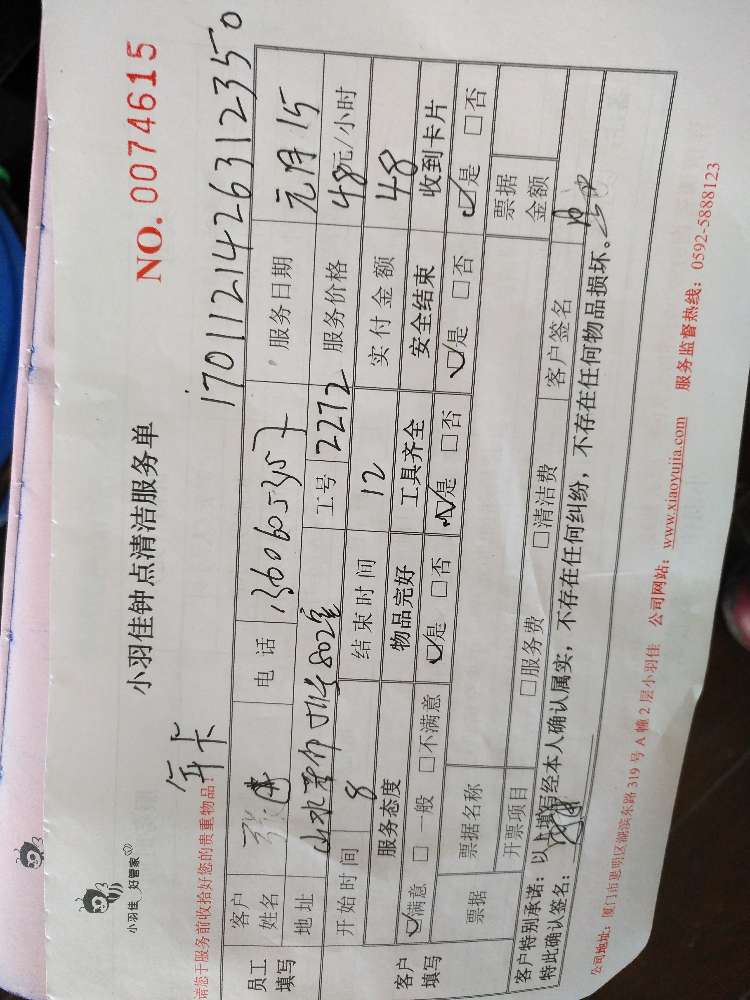 小羽佳 好管家
小羽佳钟点清洁服务单
NO. 0074615
请您于服务前收拾好您的贵重物品!
年卡
1701121426312350
员工填写
客户姓名 张
电话 13606053957
服务日期 元月15
地址 802室
工号 2272
服务价格 48元/小时
开始时间 8
结束时间 12
实付金额 48
客户填写
服务态度 物品完好 工具齐全 安全结束 收到卡片
☑满意 □一般 □不满意 ☑是 □否 ☑是 □否 ☑是 □否 ☑是 □否
票据
票据名称
票据金额
开票项目 □服务费 □清洁费
客户签名
客户特别承诺:以上填写经本人确认属实,不存在任何纠纷,不存在任何物品损坏。
特此确认签名:
公司地址:厦门市思明区湖滨东路319号A幢2层小羽佳 公司网站:www.xiaoyujia.com 服务监督热线:0592-5888123